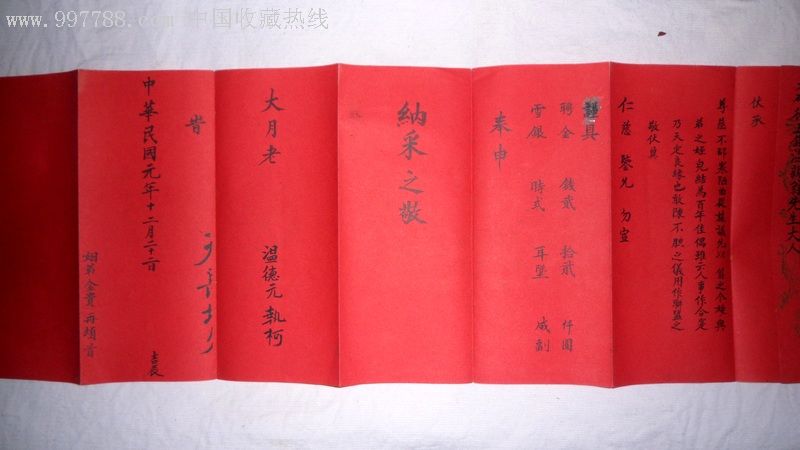 www.997788.com 中国收藏热线
伏承
尊慈不鄙寒陋曲從媒議先以 貴之令姪與
弟之姪兒結為百年佳偶雖云人事作合是
乃天定良緣也敢陳不腆之儀用作聯盟之
敬伏冀
仁慈鑒允 勿宣
謹具
聘金 錢貳 拾貳 仟圓
雪銀 時式 耳墜 成副
奉申
納采之敬
大月老 温德元 執柯
旹
中華民國元年十二月二十二日 吉辰
姻弟金貴再頓首